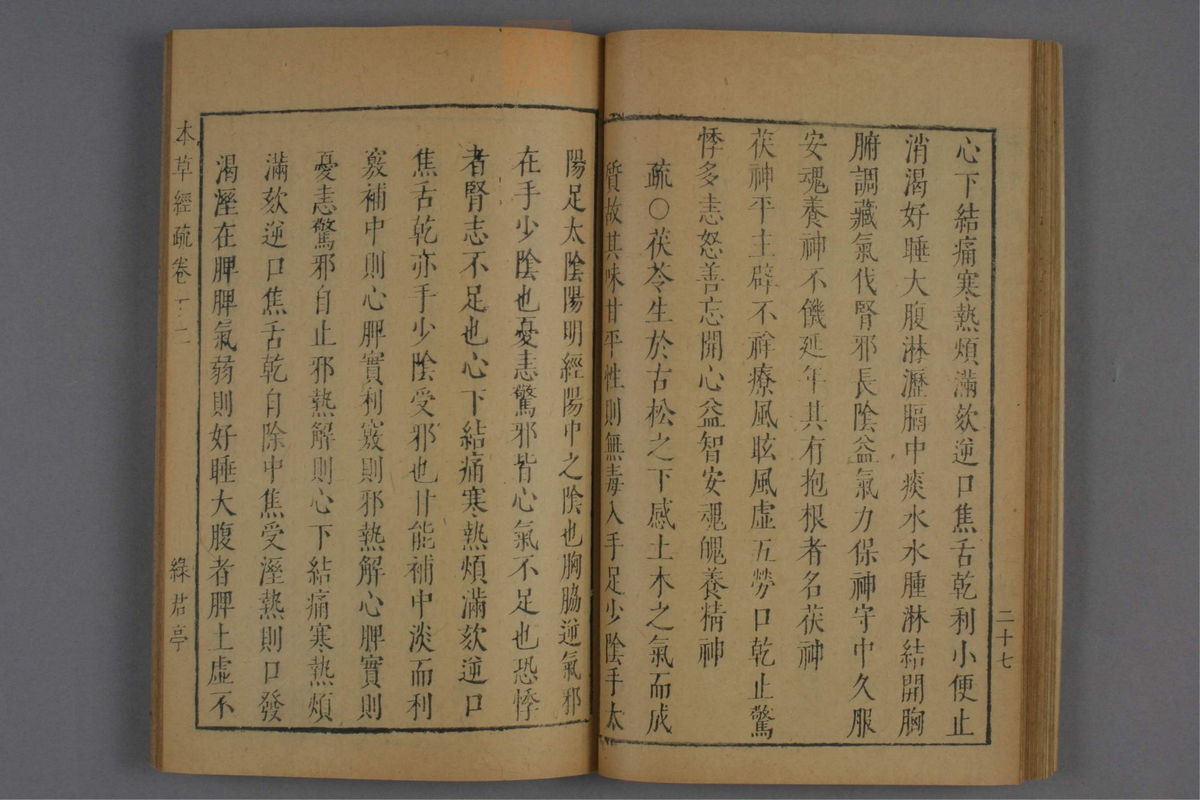 心下結痛寒熱煩滿欬逆口焦舌乾利小便止
消渴好睡大腹淋瀝膈中痰水水腫淋結開胸
腑調藏氣伐腎邪長陰益氣力保神守中久服
安魂養神不饑延年其有抱根者名茯神
茯神平主辟不祥療風眩風虛五勞口乾止驚
悸多恚怒善忘開心益智安魂魄養精神
疏○茯苓生於古松之下感土木之氣而成
質故其味甘平性則無毒入手足少陰手太
二十七
陽足太陰陽明經陽中之陰也胸脇逆氣邪
在手少陰也憂恚驚邪皆心氣不足也恐悸
者腎志不足也心下結痛寒熱煩滿欬逆口
焦舌乾亦手少陰受邪也甘能補中淡而利
竅補中則心脾實利竅則邪熱解心脾實則
憂恚驚邪自止邪熱解則心下結痛寒熱煩
滿欬逆口焦舌乾自除中焦受溼熱則口發
渴溼在脾脾氣弱則好睡大腹者脾土虛不
本草經疏卷十二
綠君亭